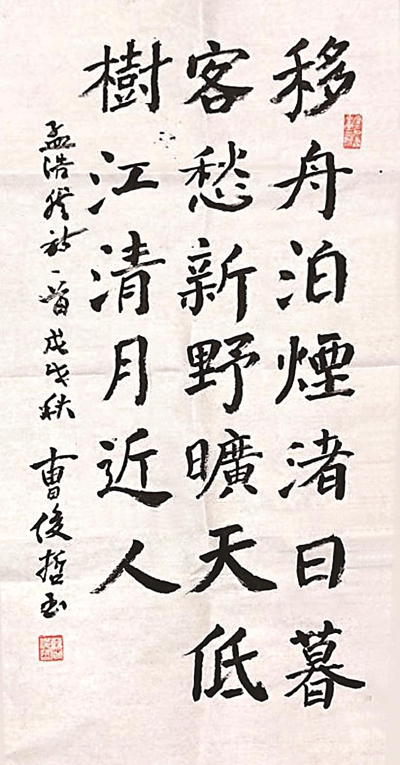 移舟泊煙渚日暮
客愁新野曠天低
樹江清月近人
孟浩然詩一首戊戌秋
曹俊哲書